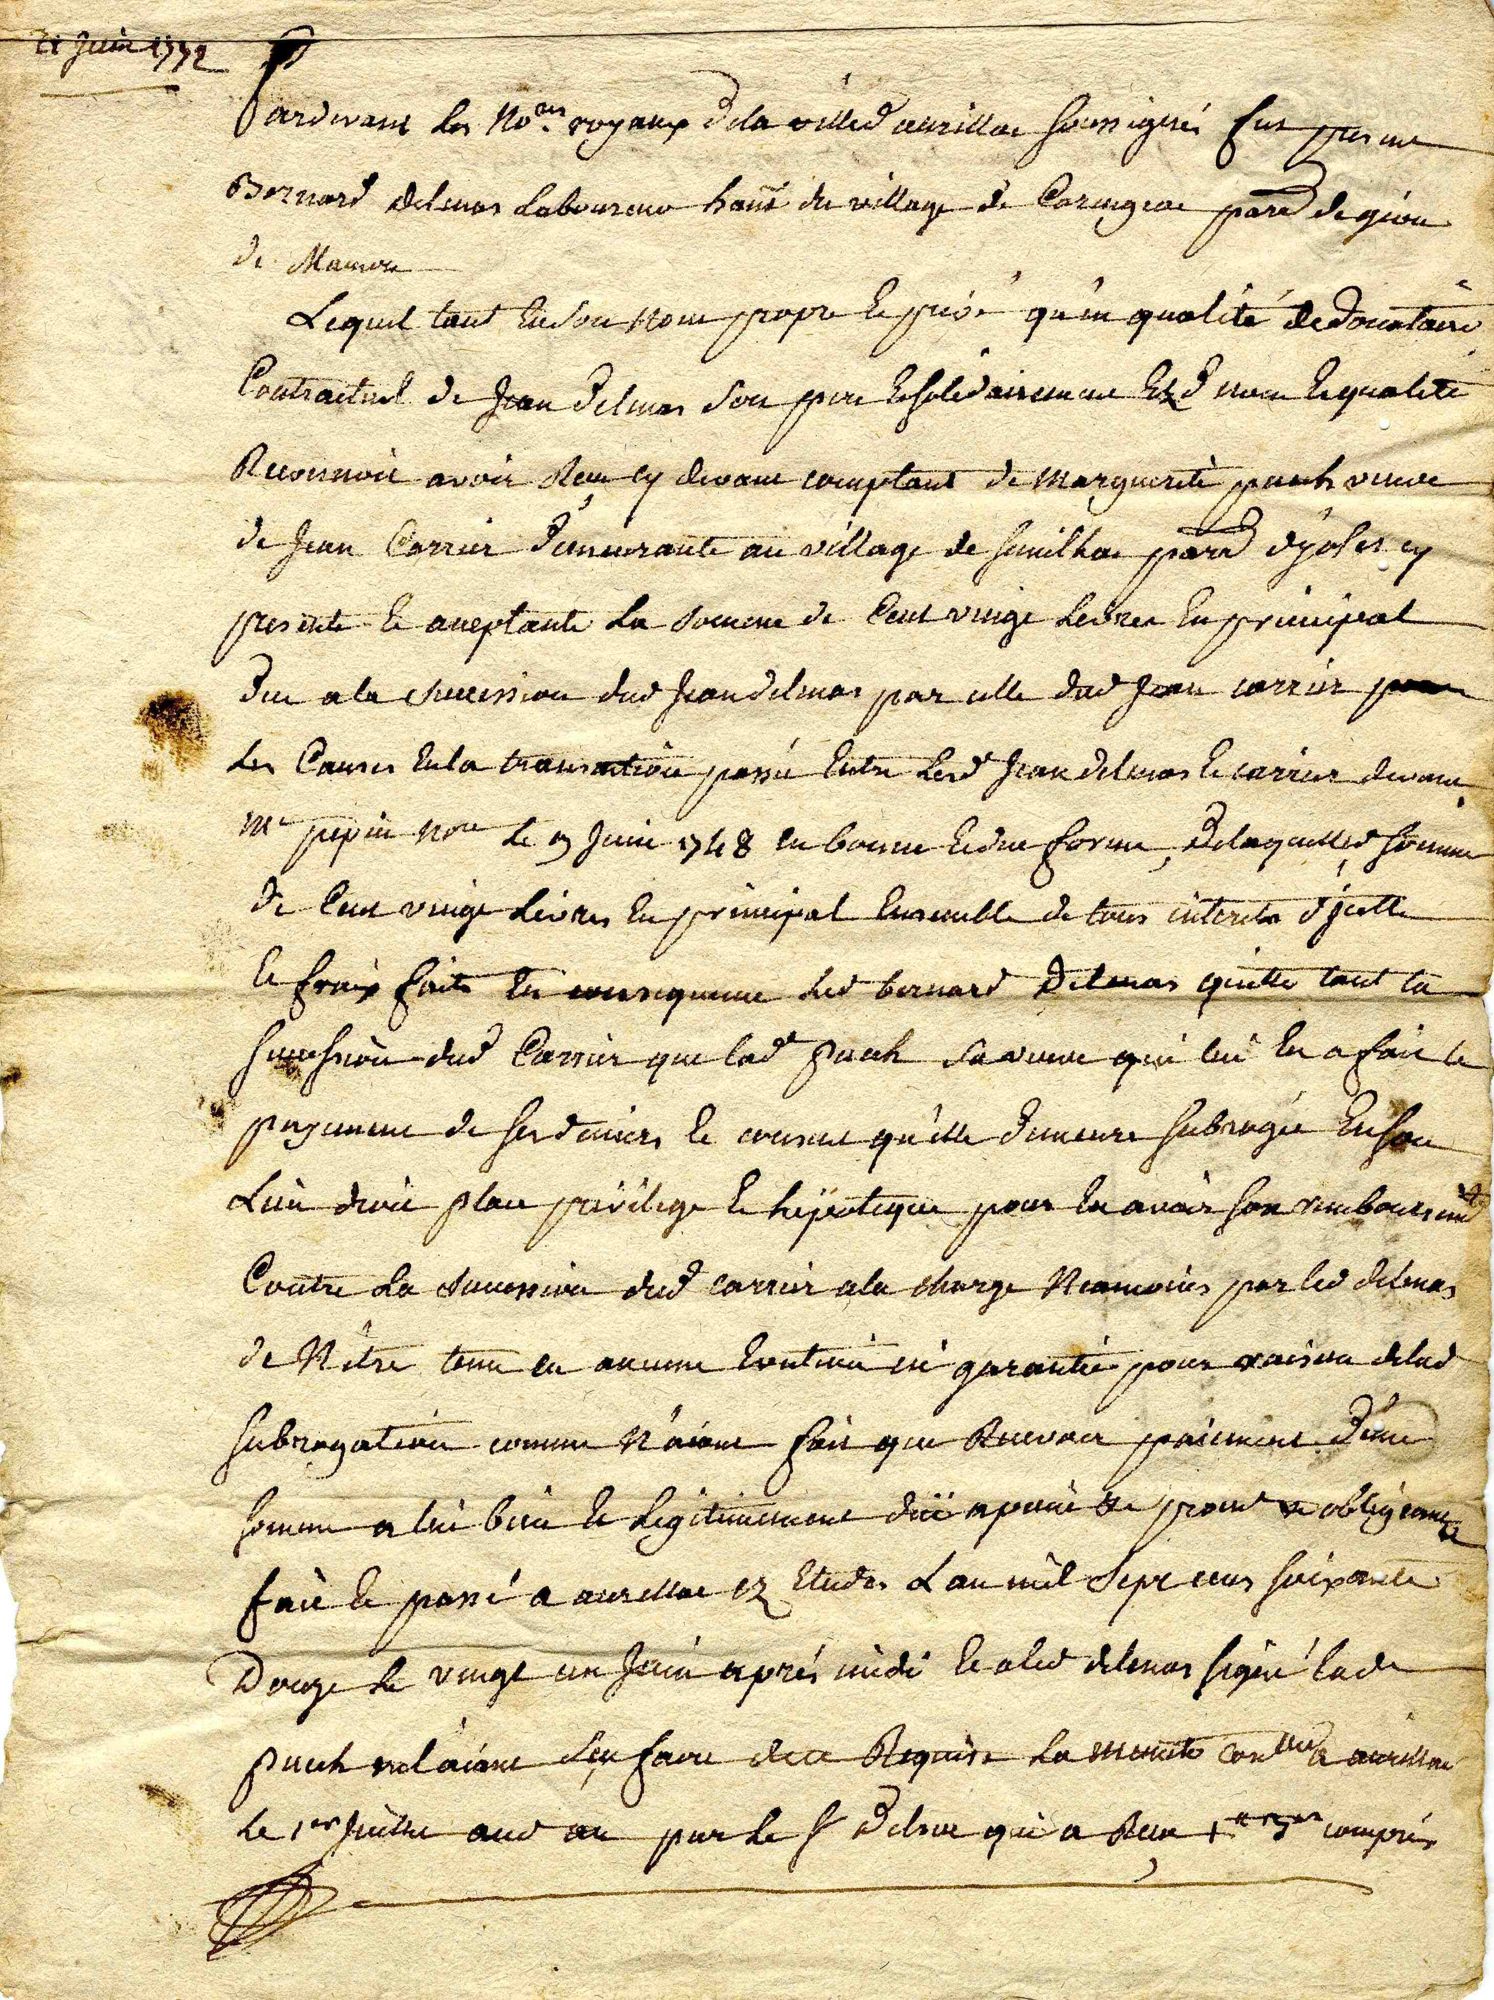 21 Juin 1772
Pardevant les No.res royaux dela ville d'aurillac soussignés fut presant
Bernard delmas Laboureur hant du village de Caringeac parr d de giou
de Mamou
Lequel tant en son nom propre et privé qu'en qualité de donataire
Contractuel de Jean delmas son pere et solidairement ezd nom et qualité
Reconnoit avoir Reçu cy devant comptant de Marguerite puech veuve
de Jean Carrier demeurante au village de Semilhac parr d d'yoles cy
presente et aceptante La somme de Cent vingt Livres en principal
due ala succession dud Jean delmas par celle dud Jean carrier pour
les Causes en la transaction passé entre Lesd Jean delmas et carrier devant
Me pepin Nore le 9 Juin 1748 en bonne et due forme, De laquelled somme
de Cent vingt Livres en principal ensemble de tous interets d'jcelle
et fraix faits en consequence Led bernard Delmas quitte tant la
succession dud Carrier que lade puech sa veuve qui lui en a fait le
payement de ses deniers et consent qu'elle demeure subrogée en son
Lieu droit place privilege et hÿpoteque pour en avoir son remboursemt
Contre La succession dud carrier ala charge Neamoins par led delmas
de N'être tenu en aucune eviction ni garantie pour raison delad
subrogation comme N'aiant fait que Recevoir paiement d'une
somme a lui bien et legitimement düe apeine &e prome &e obligeant &e
fait et passé a aurillac ez Etudes L'an mil sept cens soixante
Douze le vingt un Juin aprés midi et a led delmas signé lade
puech nel'aiant sçu faire dece Requise La minute conllée a aurillac
le 1er Juillet aud an par le Sr Delsue qui a Reçu compris